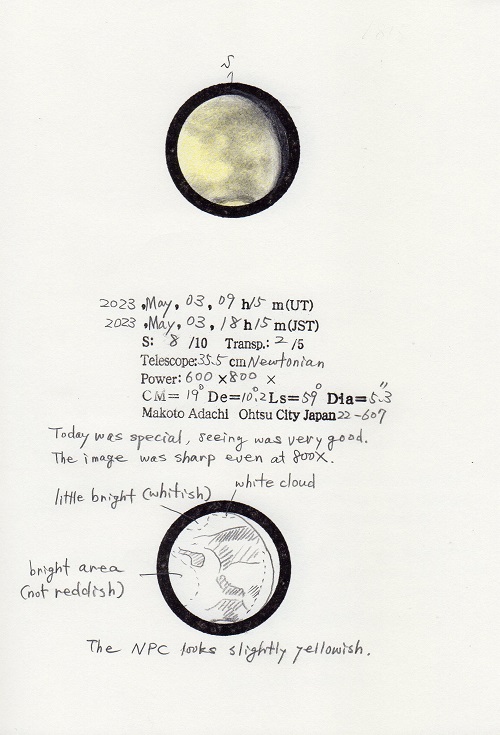 S
2023, May, 03, 09 h 15 m (UT)
2023, May, 03, 18 h 15 m (JST)
S: 8 /10 Transp.: 2 /5
Telescope: 35.5 cm Newtonian
Power: 600 × 800 ×
CM= 19° De= 10°.2 Ls= 59° Dia= 5".3
Makoto Adachi Ohtsu City Japan 22-607
Today was special, seeing was very good.
The image was sharp even at 800X.
white cloud
little bright (whitish)
bright area
(not reddish)
The NPC looks slightly yellowish.